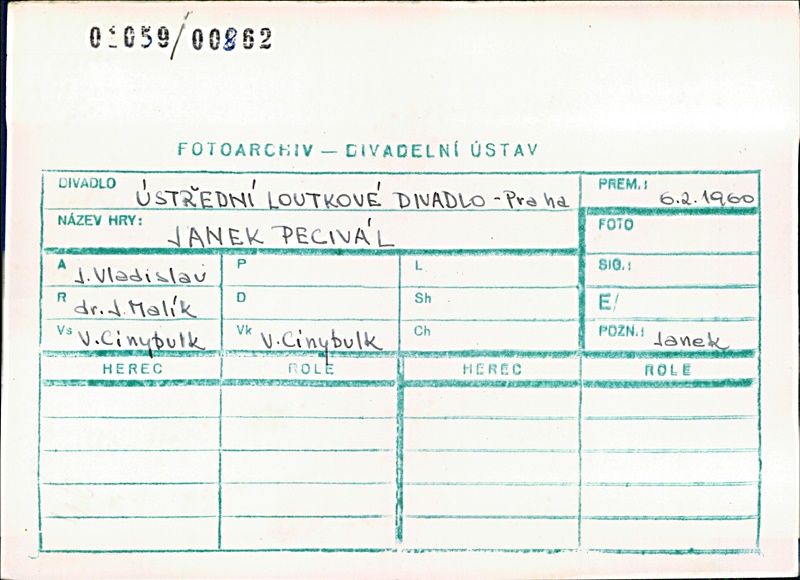 01059/00862
FOTOARCHIV — DIVADELNÍ ÚSTAV
DIVADLO ÚSTŘEDNÍ LOUTKOVÉ DIVADLO - Praha PREM.: 6.2.1960
NÁZEV HRY: JANEK PECIVÁL FOTO
A J. Vladislav P L SIG.:
R dr. J. Malík D Sh E/
Vs V. Cinybulk Vk V. Cinybulk Ch POZN.: Janek
HEREC ROLE HEREC ROLE